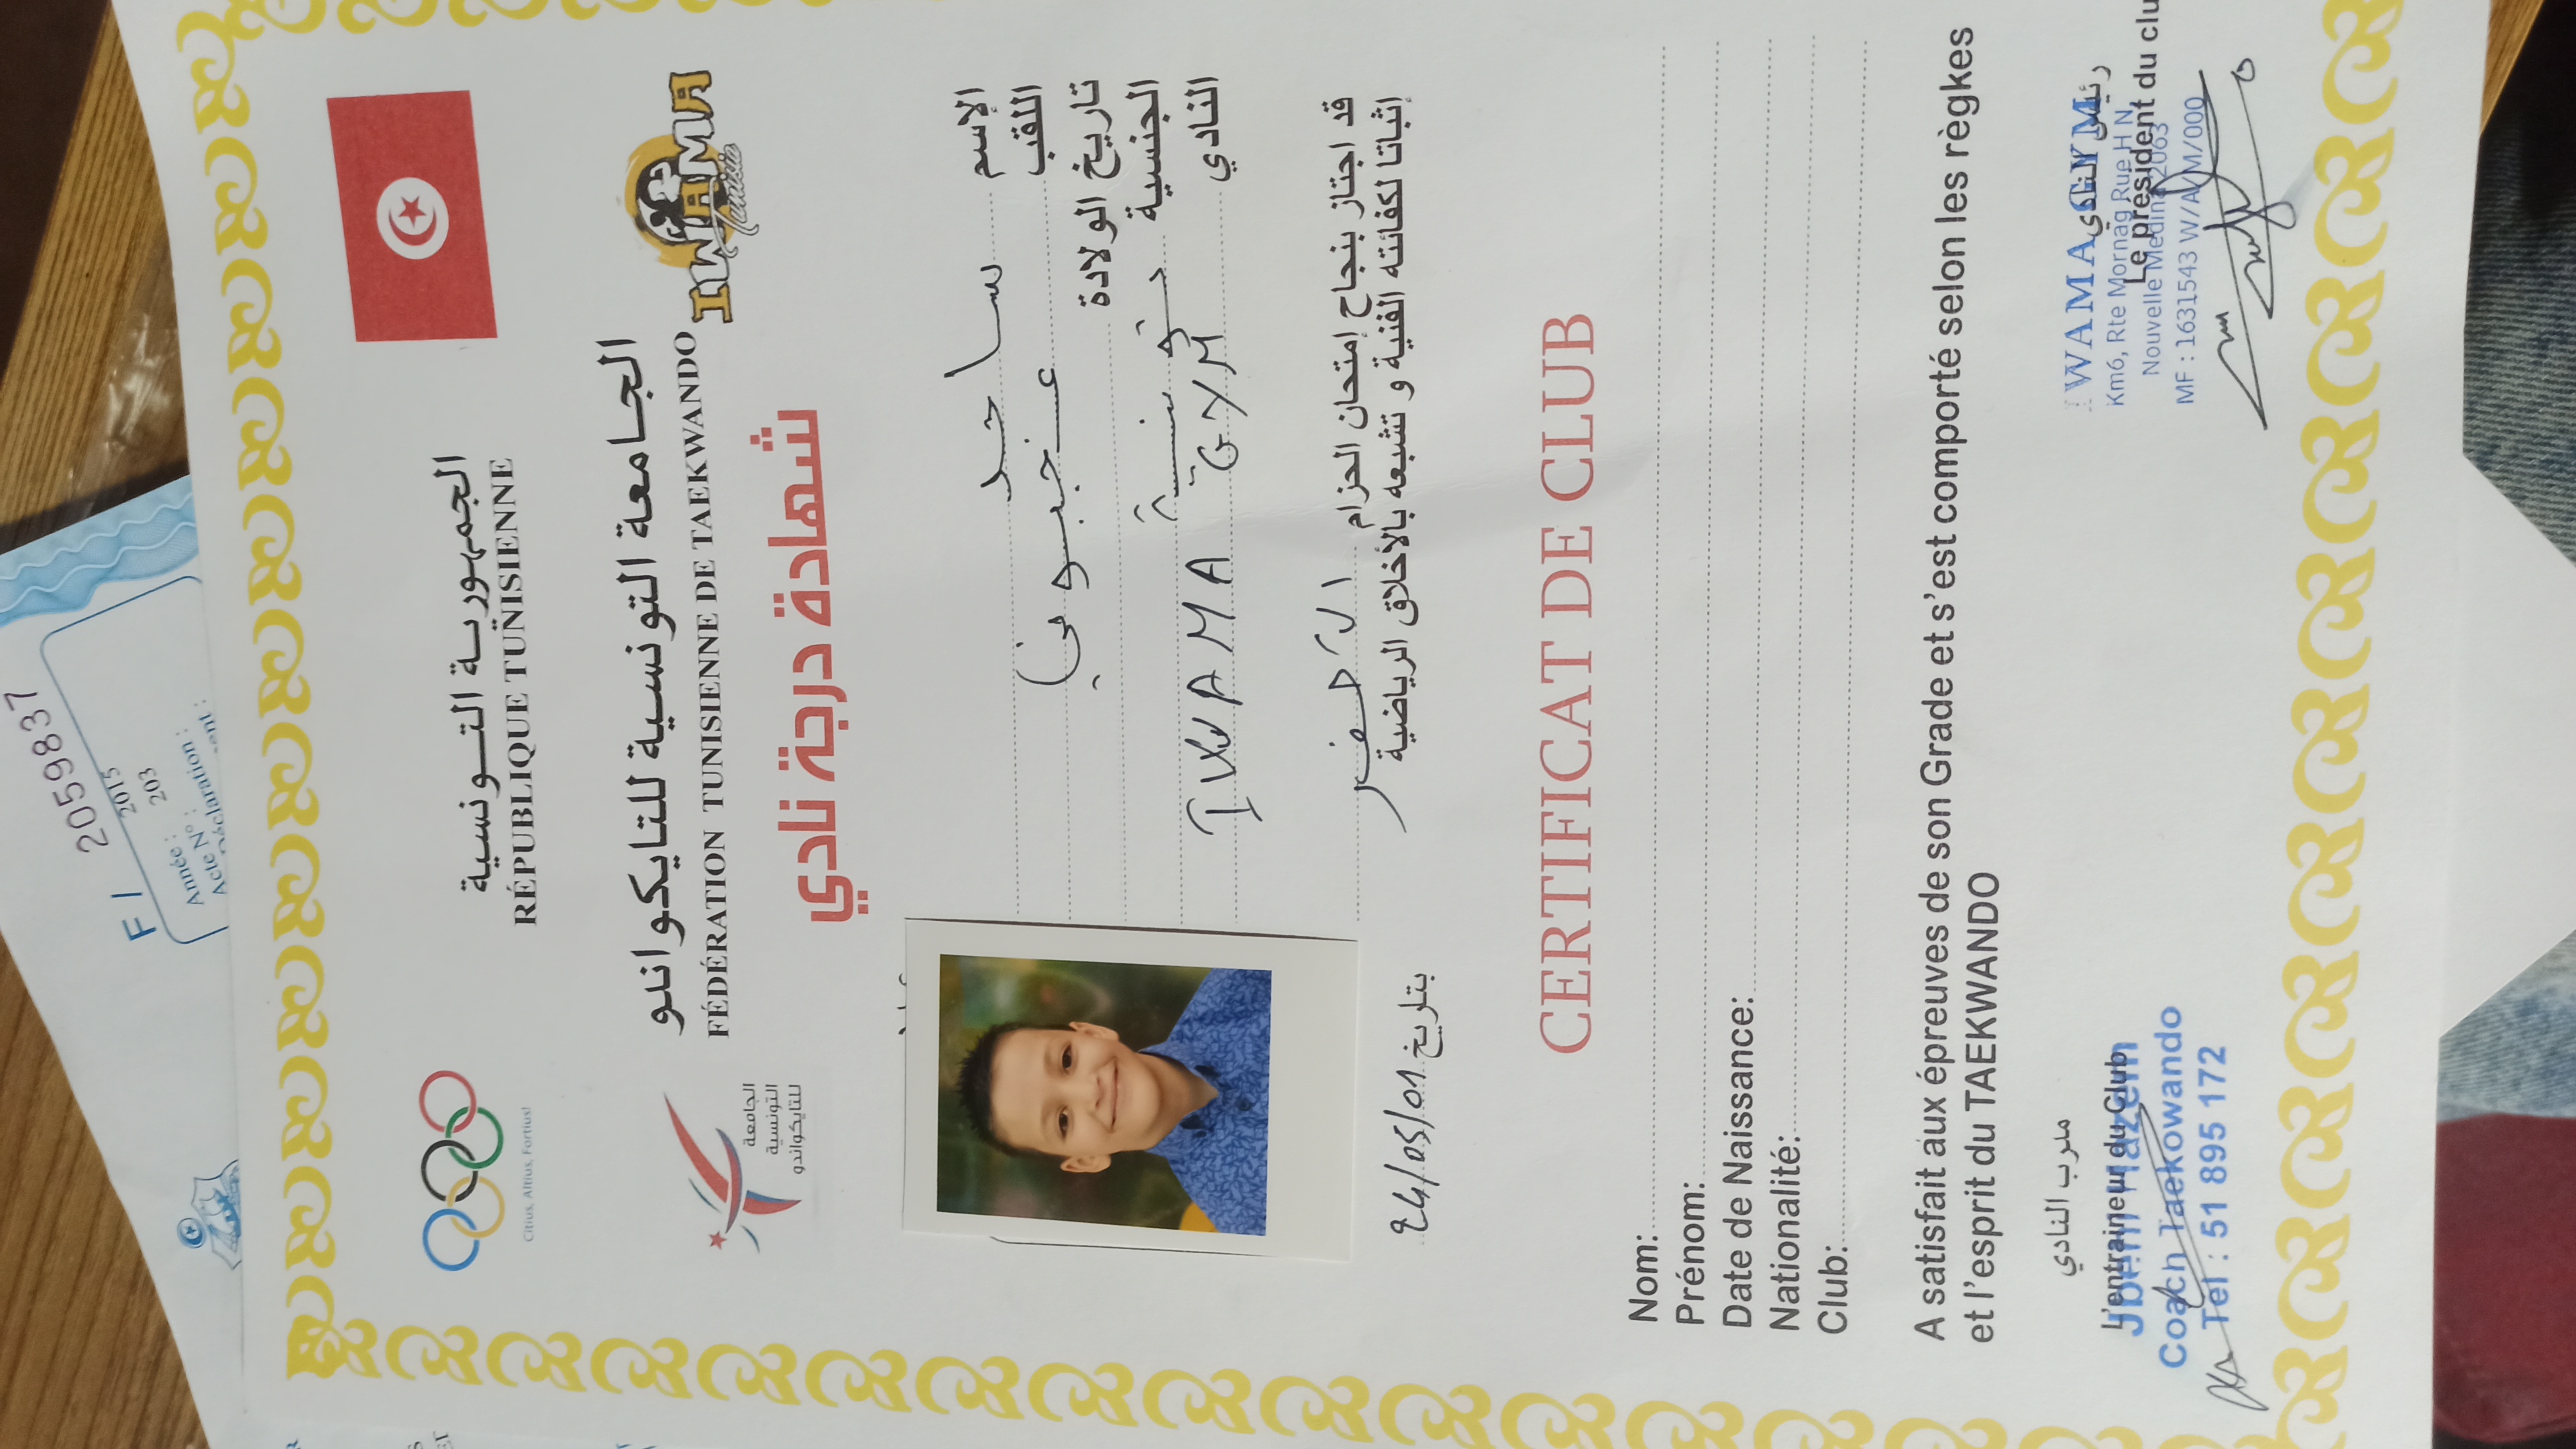 الجمهورية التونسية
RÉPUBLIQUE TUNISIENNE
Citius, Altius, Fortius!
الجامعة التونسية للتايكواندو
FÉDÉRATION TUNISIENNE DE TAEKWANDO
الجامعة
التونسية
للتايكواندو
IWAMA
Tunisia
شهادة درجة نادي
الإسم
اللقب
تاريخ الولادة
الجنسية تونسية
النادي IWAMA GYM
قد اجتاز بنجاح إمتحان الحزام
إثباتا لكفائته الفنية و تشبعه بالأخلاق الرياضية
بتاريخ 24/05/01
CERTIFICAT DE CLUB
Nom:
Prénom:
Date de Naissance:
Nationalité:
Club:
A satisfait aux épreuves de son Grade et s'est comporté selon les règkes
et l'esprit du TAEKWANDO
مدرب النادي
L'entraineur du Club
Jbeili Hazem
Coach Taekowando
Tel : 51 895 172
رئيس النادي
Le président du clu
IWAMA GYM
Km6, Rte Mornag Rue H N
Nouvelle Medina 2063
MF : 1631543 W/A/M/000
2059837
F I
2015
203
Année :
Acte N° :